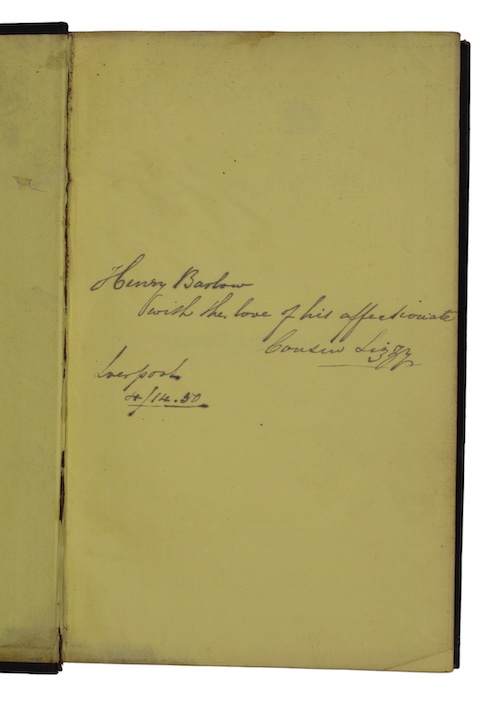 Henry Barlow
with the love of his affectionate
Cousin Lizzy
Liverpool
4/14.50